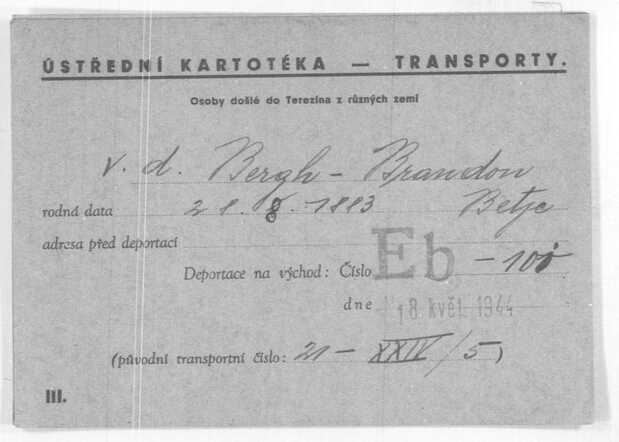 ÚSTŘEDNÍ KARTOTÉKA — TRANSPORTY.
Osoby došlé do Terezína z různých zemí
v. d. Bergh - Brandon
rodná data 28. 8. 1883 Betje
adresa před deportací
Deportace na východ: Číslo Eb - 100
dne 18. květ. 1944
(původní transportní číslo: 21 - XXIV/5)
III.